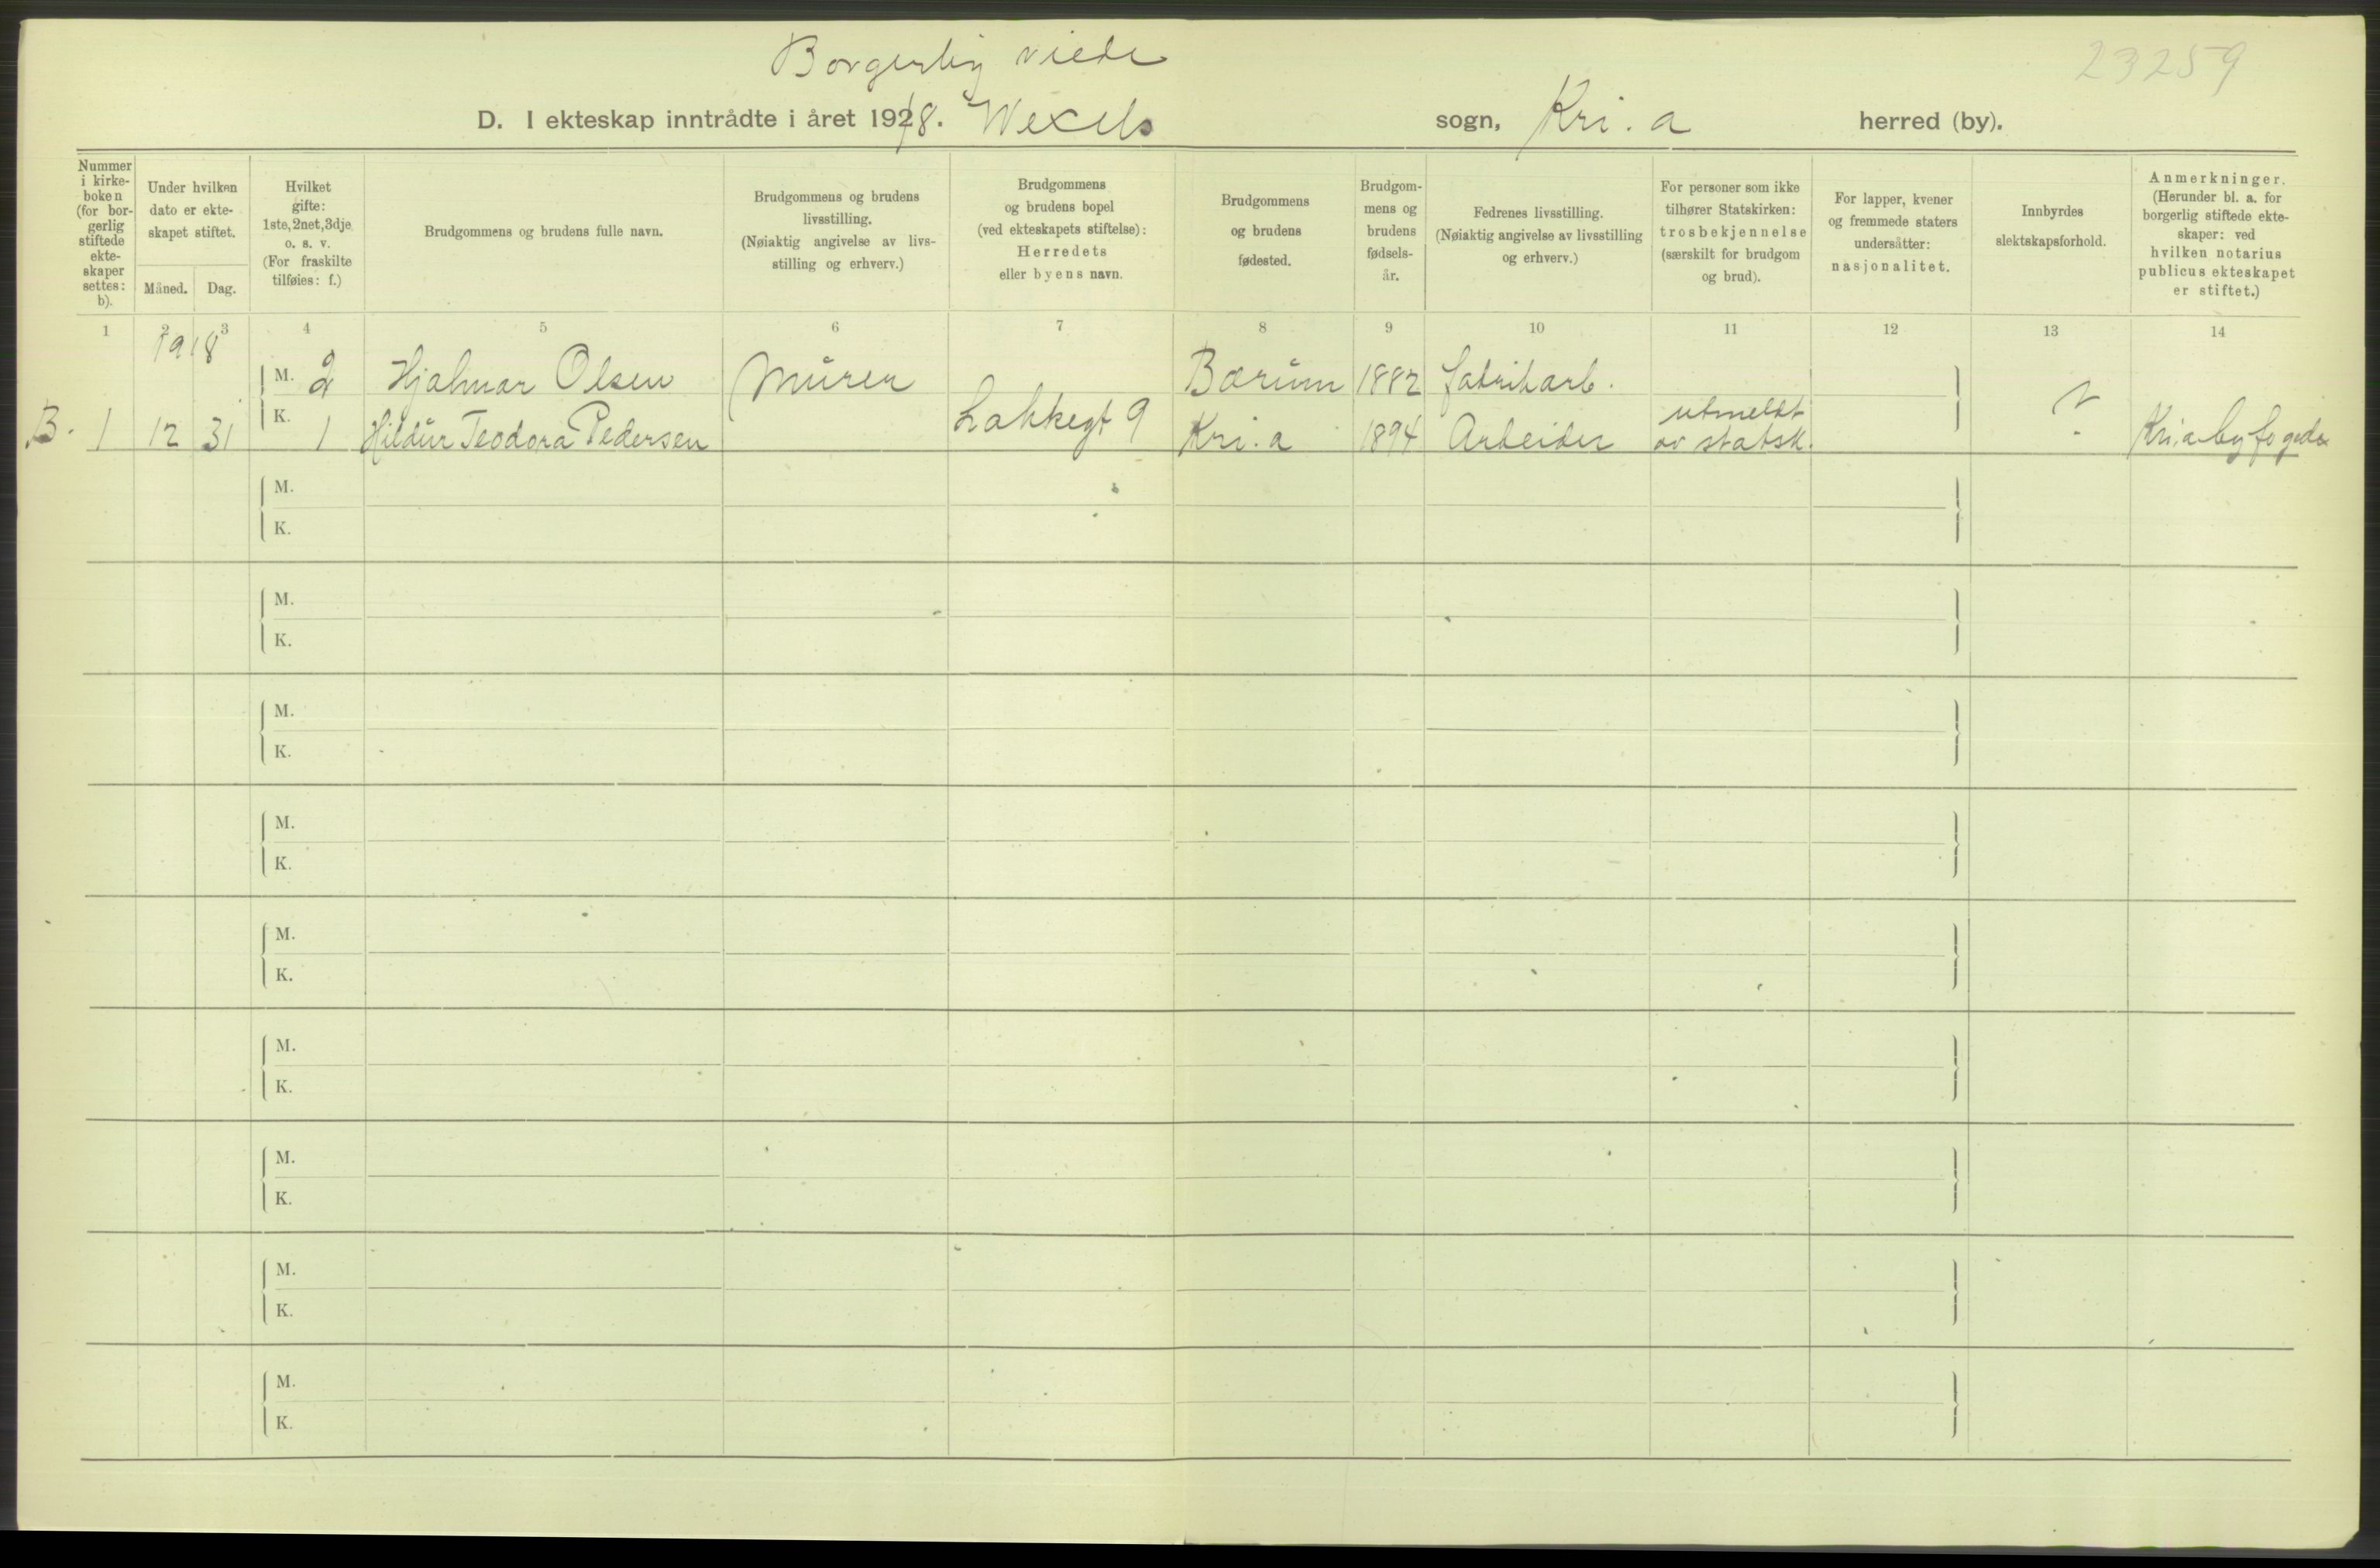 Borgerlig viede
23259
D. I ekteskap inntrådte i året 1918. Wexels sogn, Kri.a herred (by).
Nummer i kirkeboken (for borgerlig stiftede ekteskaper settes: b).
Under hvilken dato er ekteskapet stiftet.
Måned. Dag.
Hvilket gifte: 1ste, 2net, 3dje o. s. v. (For fraskilte tilføies: f.)
Brudgommens og brudens fulle navn.
Brudgommens og brudens livsstilling. (Nøiaktig angivelse av livsstilling og erhverv.)
Brudgommens og brudens bopel (ved ekteskapets stiftelse): Herredets eller byens navn.
Brudgommens og brudens fødested.
Brudgommens og brudens fødselsår.
Fedrenes livsstilling. (Nøiaktig angivelse av livsstilling og erhverv.)
For personer som ikke tilhører Statskirken: trosbekjennelse (særskilt for brudgom og brud).
For lapper, kvener og fremmede staters undersåtter: nasjonalitet.
Innbyrdes slektskapsforhold.
Anmerkninger. (Herunder bl. a. for borgerlig stiftede ekteskaper: ved hvilken notarius publicus ekteskapet er stiftet.)
1 2 3 4 5 6 7 8 9 10 11 12 13 14
1918
M. 2 Hjalmar Olsen Murer Bærum 1882 fabrikarb.
B. 1 12 31 K. 1 Hildur Teodora Pedersen Lakkegt 9 Kri.a 1894 Arbeider utmeldt av statsk. ? Kri.a byfogd
M.
K.
M.
K.
M.
K.
M.
K.
M.
K.
M.
K.
M.
K.
M.
K.
M.
K.